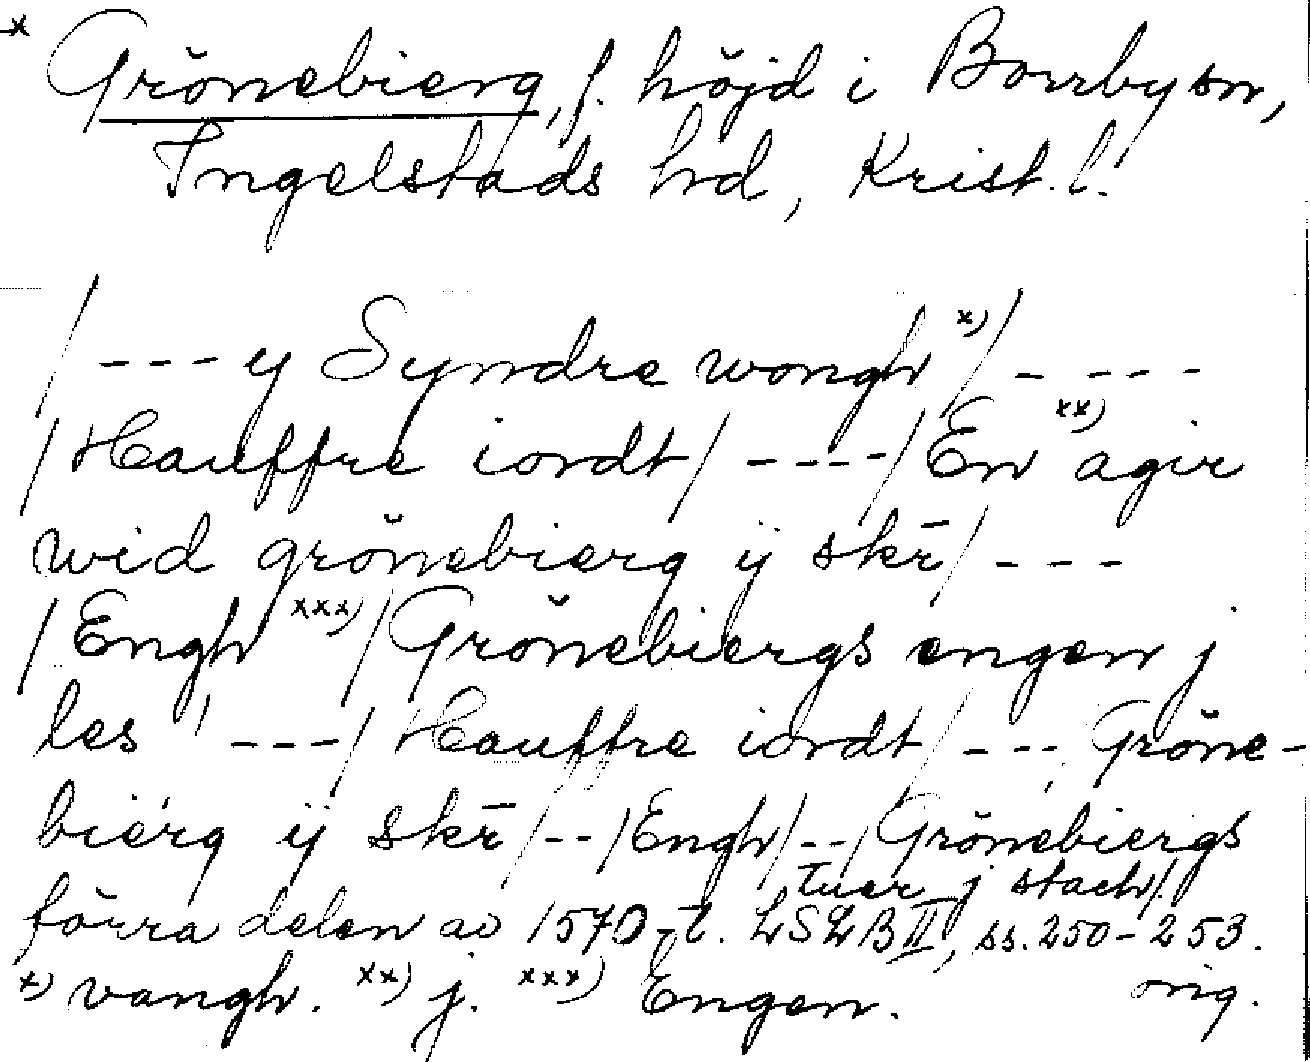 x Grönebierg, f. höjd i Borrby sn,
Ingelstads hd, Krist. l.
/--- y Syndre wongh x)/----
/Hauffre iordt/----/En xx) agir
wid grönebierg ÿ skr̄/---
/Engh xxx)/Grönebiergs engen j
les ---/Hauffre iordt/---, Gröne-
bierg ÿ skr̄/--/Engh/--/Grönebiergs
tuer j stach/.
förra delen av 1570-t. LSLB II, ss. 250-253.
x) vangh. xx) j. xxx) Engen. orig.